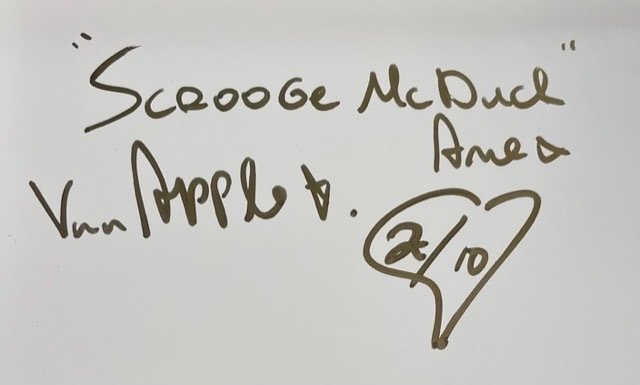 "SCROOGE McDuck"
Van Apple
2/10